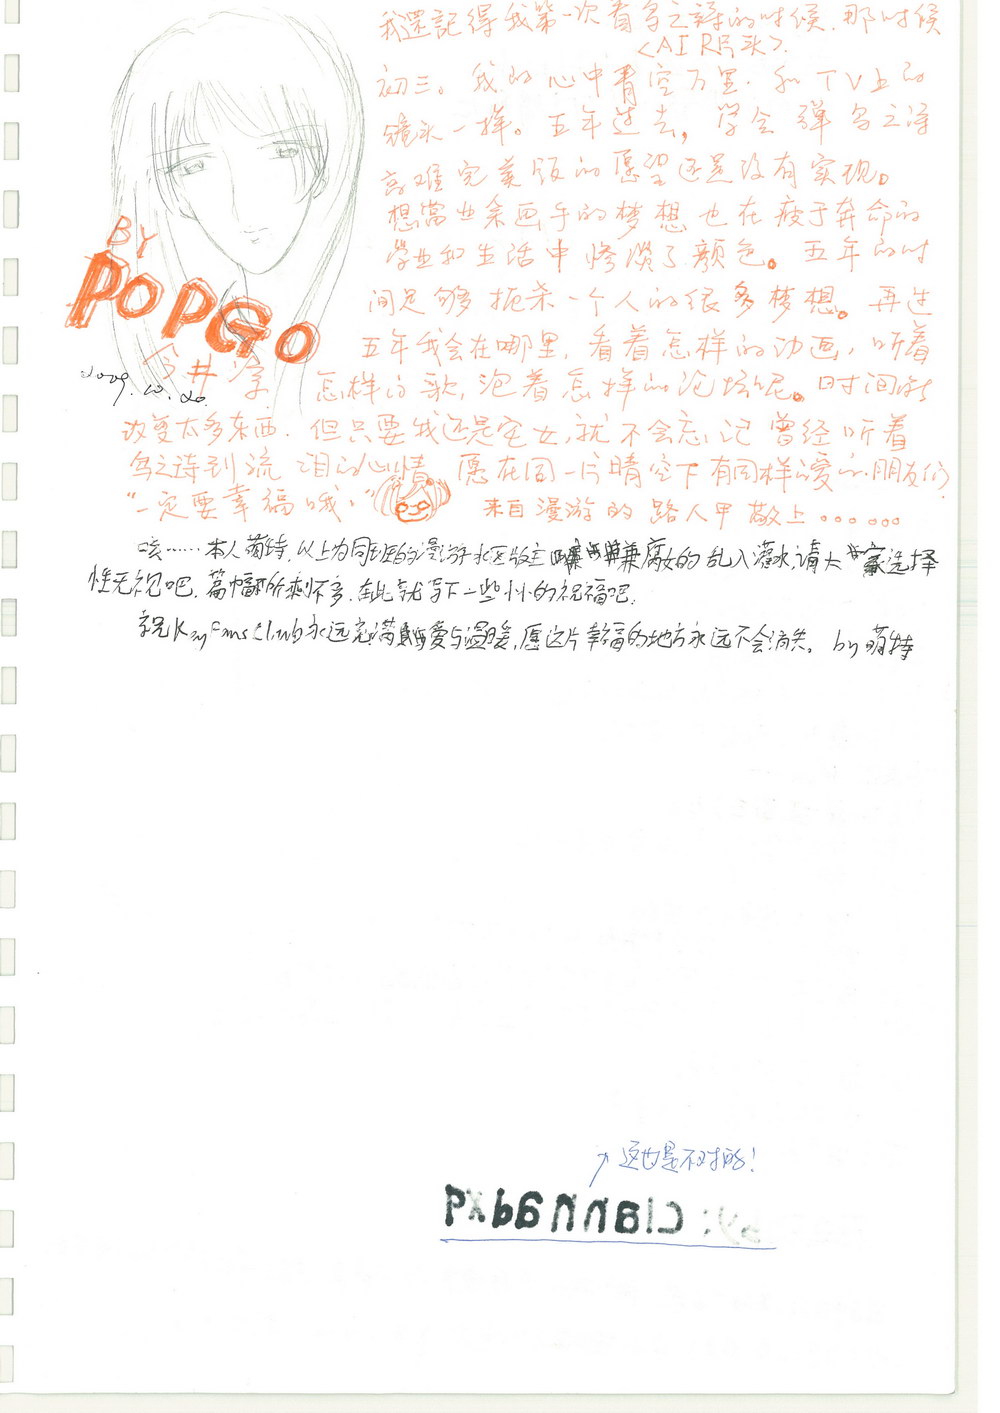 我還記得我第一次看鸟之诗的时候.那时候
<AIR片头>.
初三。我的心中青空万里.和TV上的
镜头一样。五年过去,学会弹鸟之诗
高难完美版的愿望还是没有实现。
想當业余画手的梦想也在疲于奔命的
学业和生活中惨淡了颜色。五年的时
间足够扼杀一个人的很多梦想。再过
五年我会在哪里,看着怎样的动画,听着
怎样的歌,泡着怎样的论坛呢。时间能
改变太多东西.但只要我还是宅女,就不会忘记曾经听着
鸟之诗到流泪的心情 愿在同一片晴空下有同样爱的朋友们
“一定要幸福哦.” 来自漫游的路人甲敬上。。。。。。
BY
POPGO
今井凉
2009.10.20.
咳……本人萌特,以上为同班的漫游水区版主兼腐女的乱入灌水,请大家选择
性无视吧.篇幅所剩不多.在此就写下一些小小的祝福吧.
祝Key Fans Club永远充满爱与温暖,愿这片幸福的地方永远不会消失。by 萌特
↗这也是不对的!
by: clannadxq